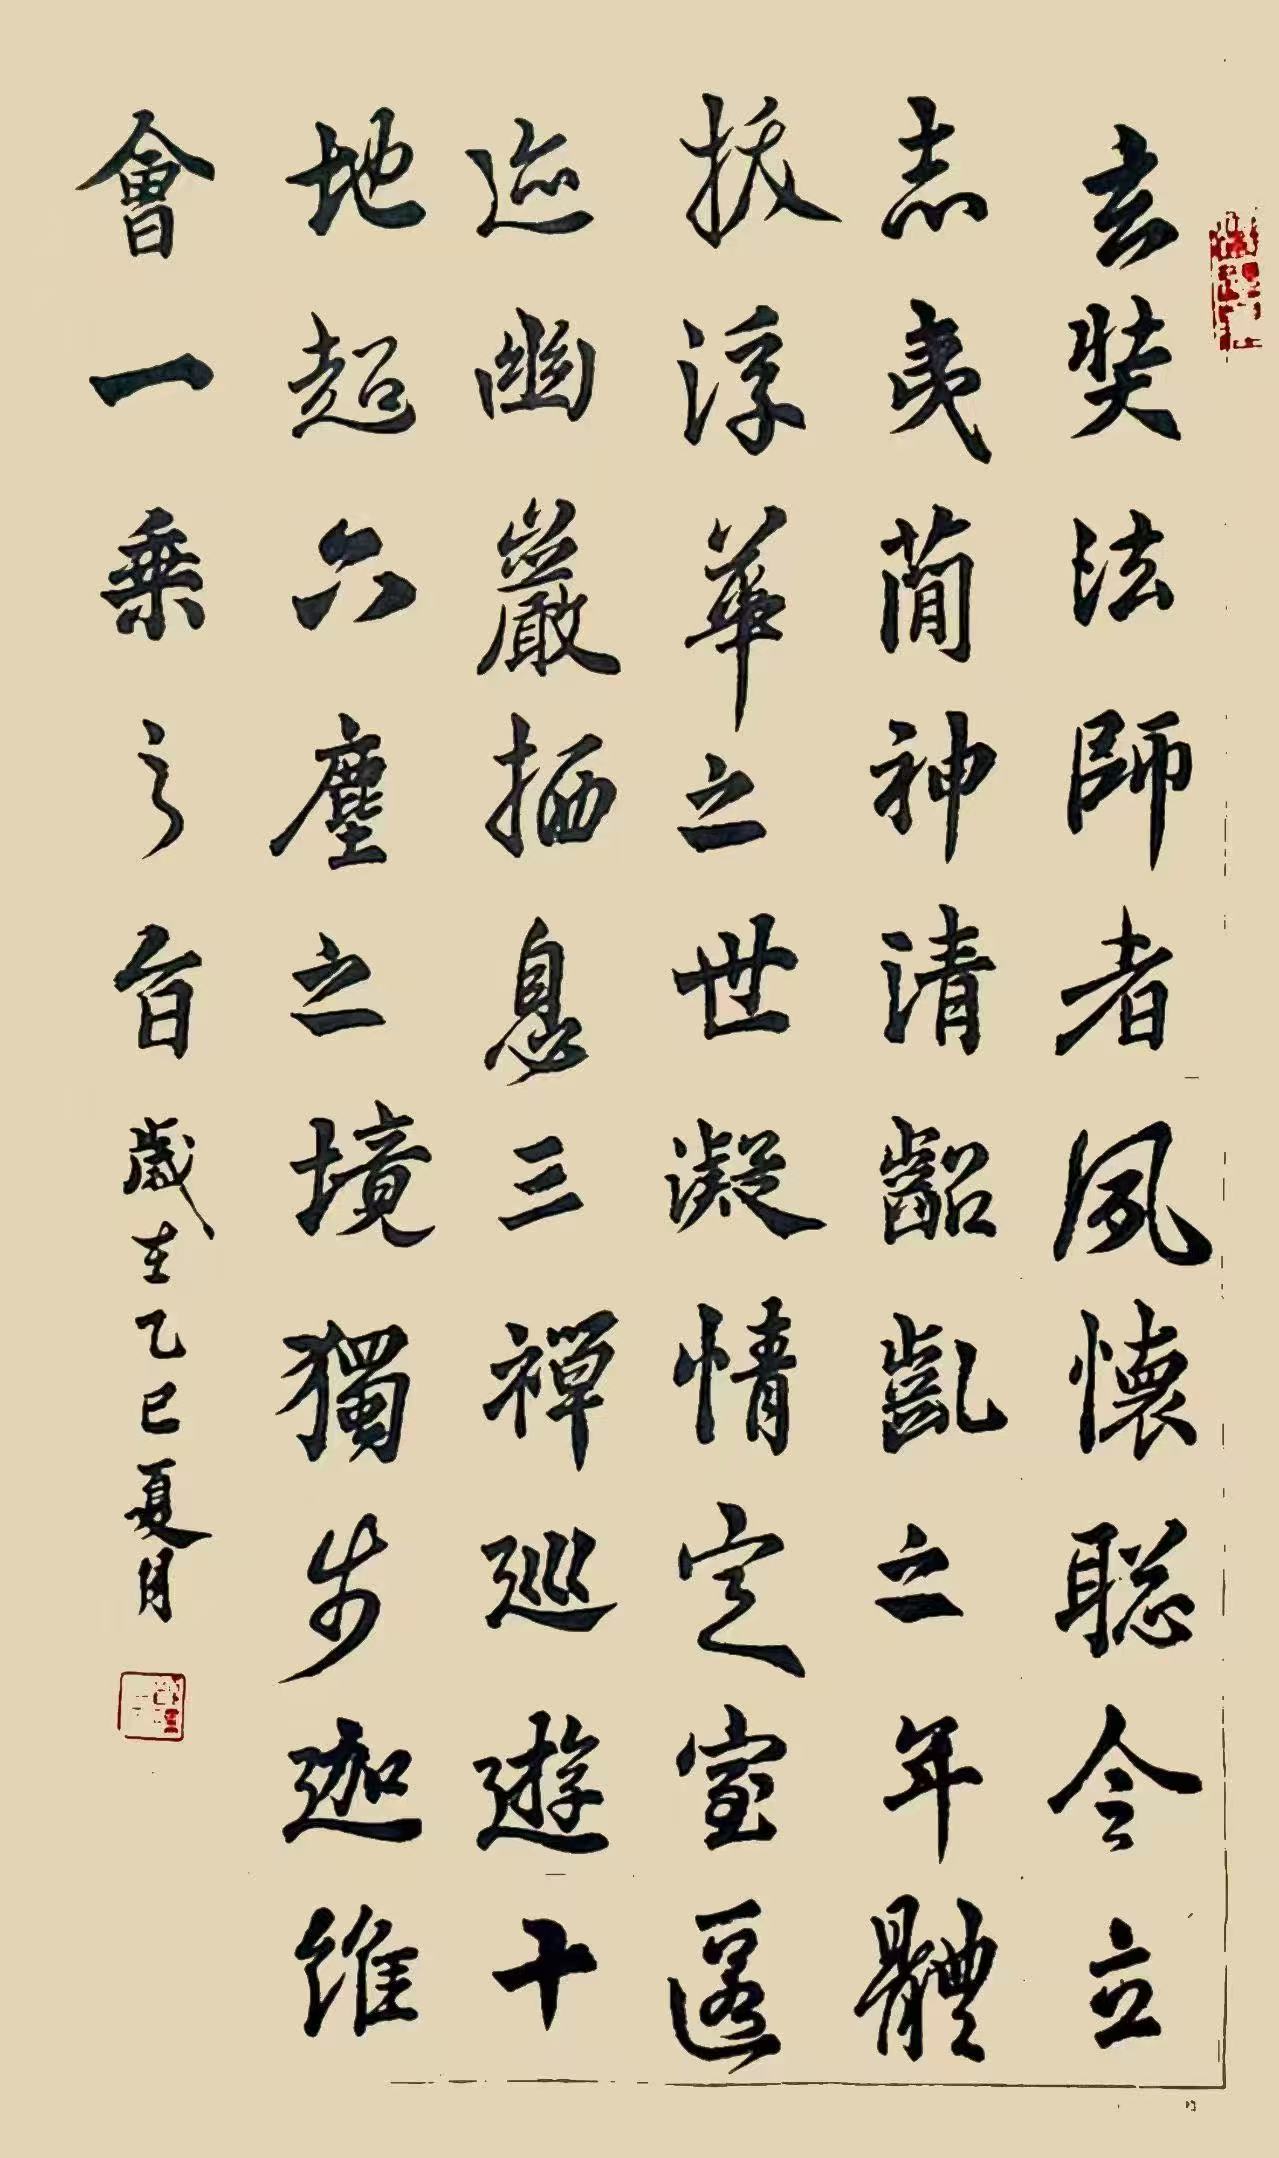 玄奘法師者夙懷聡令立
志夷蕳神清齠齔之年體
拔浮華之世凝情定室匿
迹幽巖栖息三禪巡遊十
地超六塵之境獨步迦維
會一乘之旨歲在乙巳夏月